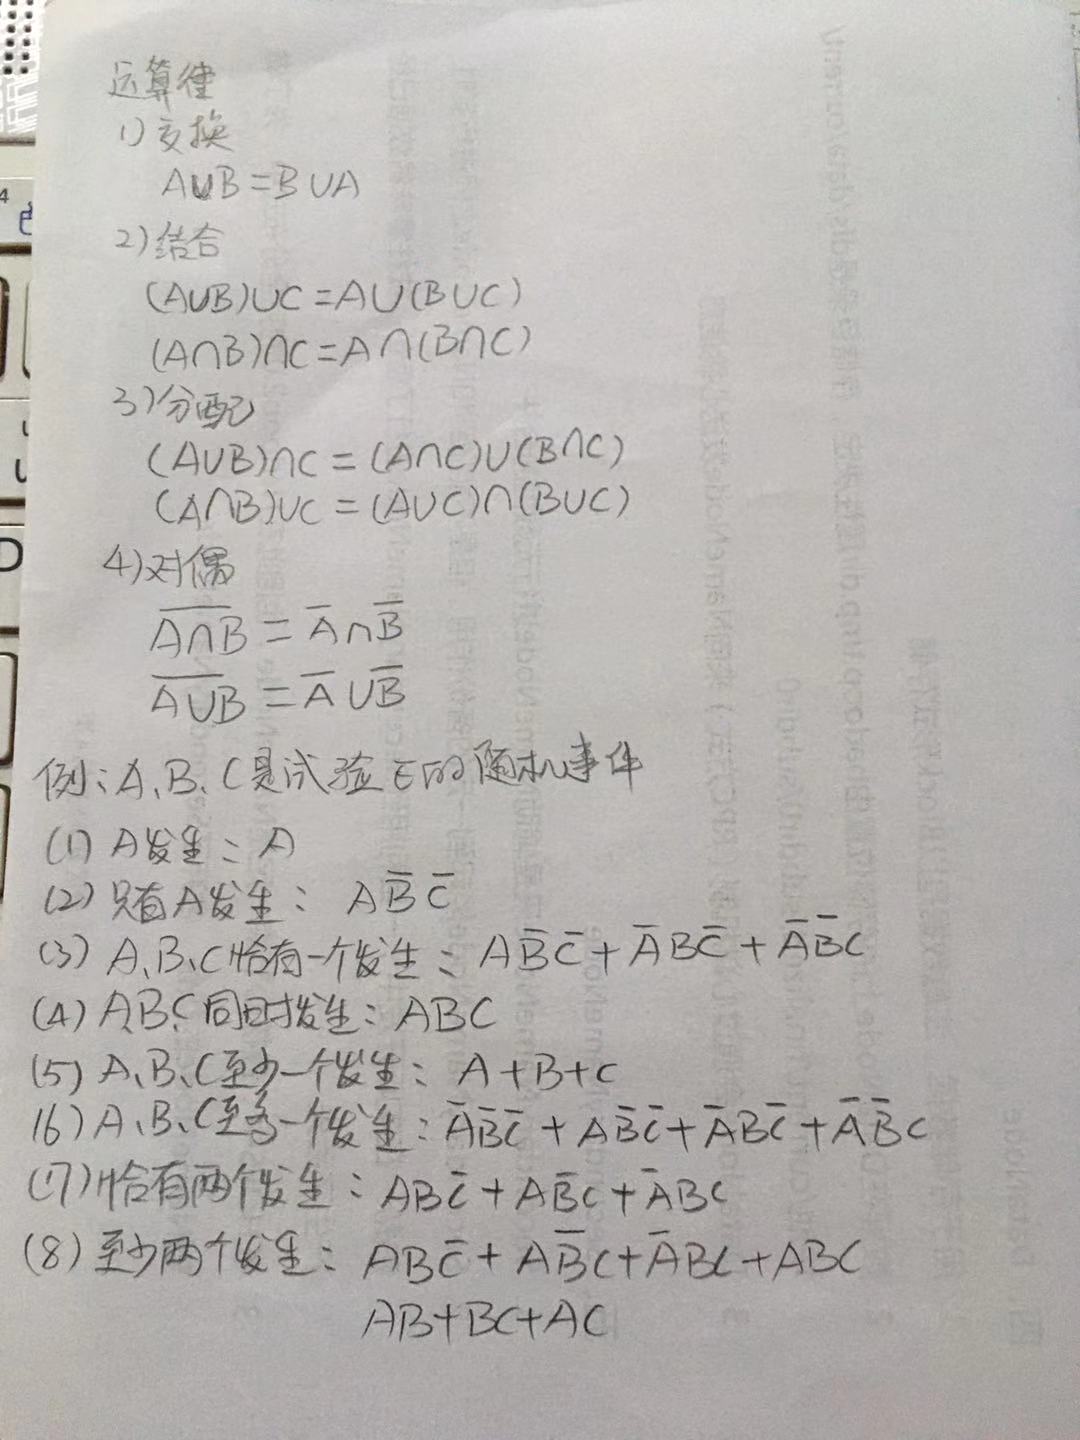 运算律
1)交换
A∪B=B∪A
2)结合
(A∪B)∪C=A∪(B∪C)
(A∩B)∩C=A∩(B∩C)
3)分配
(A∪B)∩C=(A∩C)∪(B∩C)
(A∩B)∪C=(A∪C)∩(B∪C)
4)对偶
A̅∩̅B̅=A̅∩B̅
A̅∪̅B̅=A̅∪B̅
例:A、B、C是试验E的随机事件
(1) A发生:A
(2) 只有A发生:AB̅C̅
(3) A、B、C恰有一个发生:AB̅C̅+A̅BC̅+A̅B̅C
(4) A、B、C同时发生:ABC
(5) A、B、C至少一个发生:A+B+C
(6) A、B、C至多一个发生:A̅B̅C̅+AB̅C̅+A̅BC̅+A̅B̅C
(7) 恰有两个发生:ABC̅+AB̅C+A̅BC
(8) 至少两个发生:ABC̅+AB̅C+A̅BC+ABC
AB+BC+AC